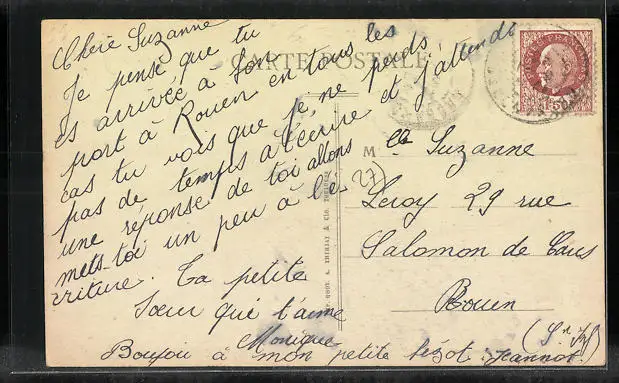 CARTE POSTALE
Chère Suzanne
Je pense que tu
es arrivée à bon
port à Rouen en tous les
cas tu vois que je ne perds
pas de temps a t'écrire et j'attends
une reponse de toi allons
mets-toi un peu à l'é
criture. Ta petite
Sœur qui t'aime
Monique
à mon petite Jeannot.
POSTES FRANÇAISES
1F50
Mlle Suzanne
27
Leroy 29 rue
Salomon de Caus
Rouen
(Sre Infre)
A. THIRIAT & Cie TOULOUSE